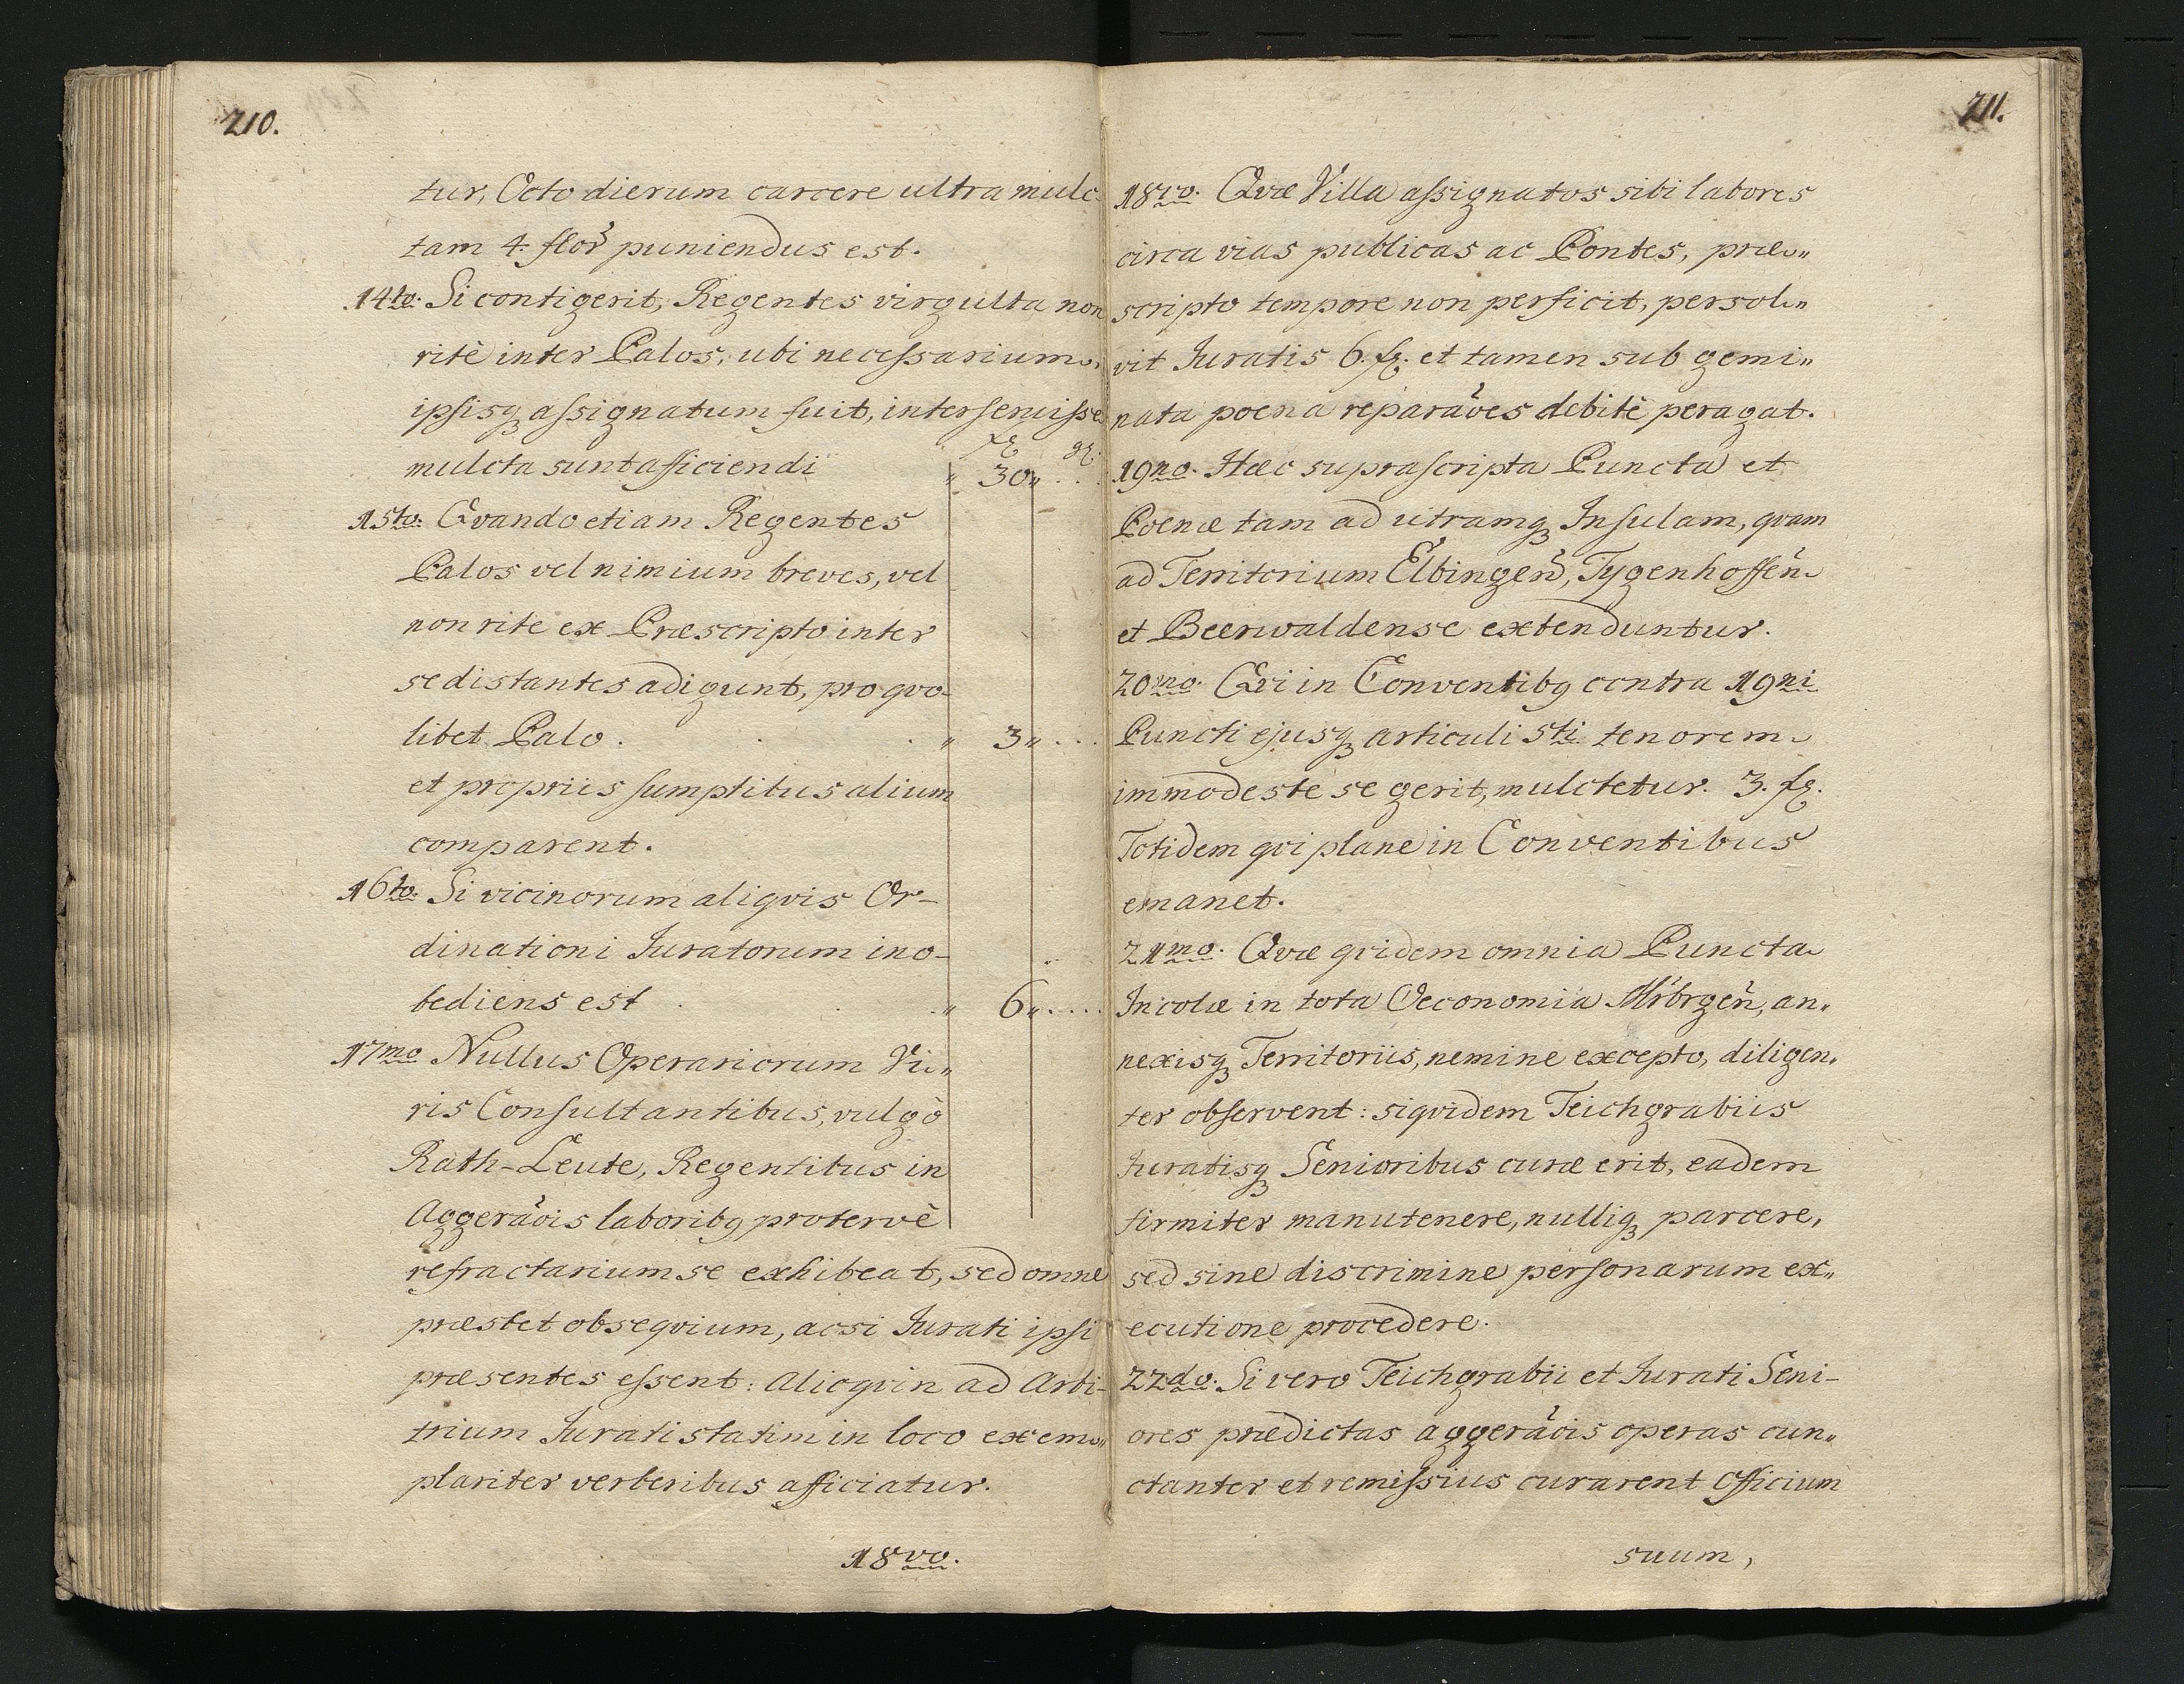 210.
tur, Octo dierum carcere ultra mulc-
tam 4. flor̃ puniendus est.
14to. Si contigerit, Regentes virgulta non
ritè inter Palos, ubi necessarium,
ipsisq assignatum fuit, interseruisse
mulcta sunt afficiendi " 30 " . .
15to. Qvando etiam Regentes
Palos vel nimium breves, vel
non rite ex Præscripto inter
se distantes adigunt, pro qvo-
libet Palo . . . " 3 " . . .
et propriis sumptibus alium
comparent.
16to. Si vicinorum aliqvis Or-
dinationi Juratorum ino-
bediens est . . . " 6 " . . . .
17mo Nullus Operariorum Vi„
ris Consultantibus, vulgò
Rath-Leute, Regentibus in
Aggerãois laboribq protervè
refractarium se exhibeat, sed omne
præstet obseqvium, acsi Jurati ipsi
præsentes essent: alioqvin ad Arbi-
trium Jurati statim in loco exem„
plariter verberibus afficiatur.
18vo.
211.
18vo. Qvæ Villa assignatos sibi labores
circa vias publicas ac Pontes, præ„
scripto tempore non perficit, persol„
vit Juratis 6. fl. et tamen sub gemi„
nata poena reparãoes debitè peragat.
19no. Hæc suprascripta Puncta et
Poenæ tam ad utramq Insulam, qvam
ad Territorium Elbingeñ, Tygenhoffeñ
et Beerwaldense extenduntur.
20mo. Qvi in Conventibq contra 19ni
Puncti ejusq articuli 5ti tenorem
immodeste se gerit, mulctetur. 3. fl.
Totidem qvi plane in Conventibus
emanet.
21mo. Qvæ qvidem omnia Puncta
Incolæ in tota Oeconomia Mrbrgeñ, an„
nexisq Territoriis, nemine excepto, diligen„
ter observent: siqvidem Teichgrabiis
Juratisq Senioribus curæ erit, eadem
firmiter manutenere, nulliq parcere,
sed sine discrimine personarum ex„
ecutione procedere.
22do. Si vero Teichgrabii et Jurati Seni-
ores prædictas aggerãois operas cun„
ctanter et remissius curarent Officium
suum,